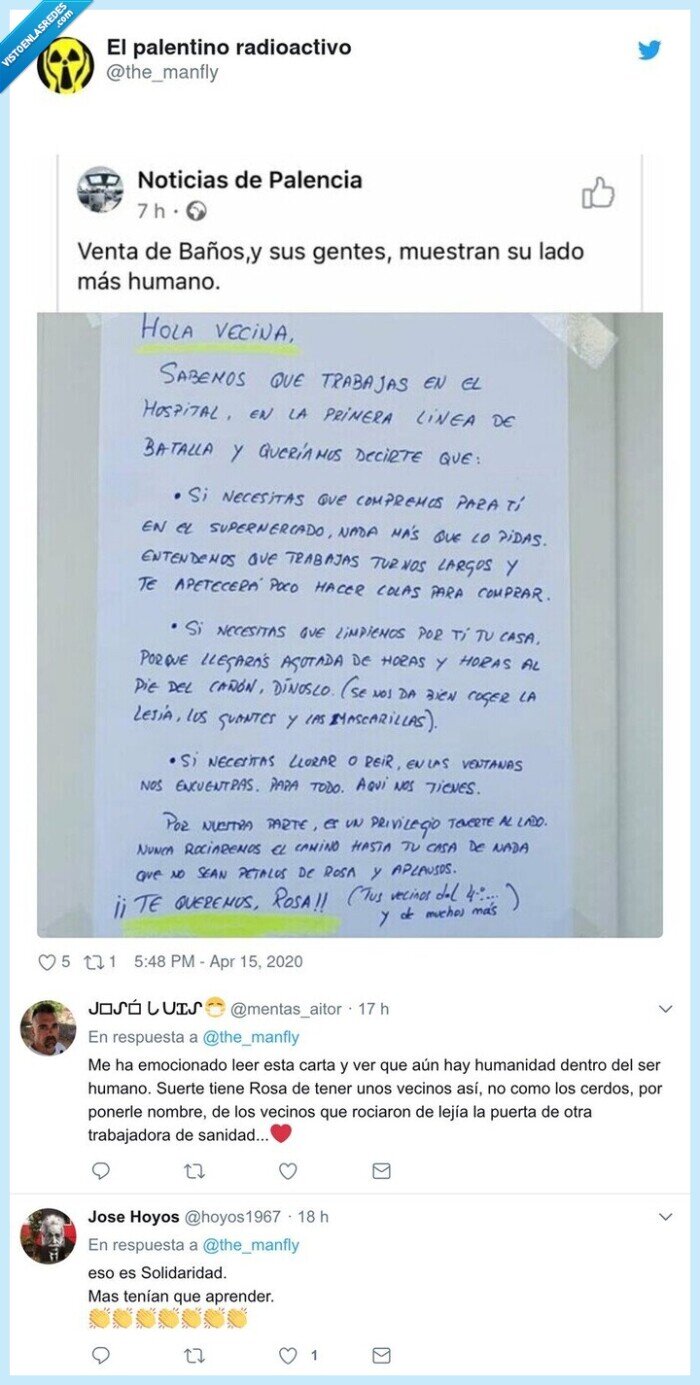 VISTOENLASREDES
.com
El palentino radioactivo
@the_manfly
Noticias de Palencia
7 h ·
Venta de Baños,y sus gentes, muestran su lado
más humano.
HOLA VECINA,
SABEMOS QUE TRABAJAS EN EL
HOSPITAL, EN LA PRIMERA LÍNEA DE
BATALLA Y QUERÍAMOS DECIRTE QUE:
• SI NECESITAS QUE COMPREMOS PARA TÍ
EN EL SUPERMERCADO, NADA MÁS QUE LO PIDAS.
ENTENDEMOS QUE TRABAJAS TURNOS LARGOS Y
TE APETECERÁ POCO HACER COLAS PARA COMPRAR.
• SI NECESITAS QUE LIMPIEMOS POR TÍ TU CASA,
PORQUE LLEGARÁS AGOTADA DE HORAS Y HORAS AL
PIE DEL CAÑÓN, DÍNOSLO. (SE NOS DA BIEN COGER LA
LEJÍA, LOS GUANTES Y LAS MASCARILLAS).
• SI NECESITAS LLORAR O REIR, EN LAS VENTANAS
NOS ENCUENTRAS. PARA TODO. AQUÍ NOS TIENES.
POR NUESTRA PARTE, ES UN PRIVILEGIO TENERTE AL LADO.
NUNCA ROCIAREMOS EL CAMINO HASTA TU CASA DE NADA
QUE NO SEAN PETALOS DE ROSA Y APLAUSOS.
¡¡ TE QUEREMOS, ROSA!! (Tus vecinos del 4º...
y de muchos más)
5 1 5:48 PM - Apr 15, 2020
@mentas_aitor · 17 h
En respuesta a @the_manfly
Me ha emocionado leer esta carta y ver que aún hay humanidad dentro del ser
humano. Suerte tiene Rosa de tener unos vecinos así, no como los cerdos, por
ponerle nombre, de los vecinos que rociaron de lejía la puerta de otra
trabajadora de sanidad...❤️
Jose Hoyos @hoyos1967 · 18 h
En respuesta a @the_manfly
eso es Solidaridad.
Mas tenían que aprender.
👏👏👏👏👏👏👏
1